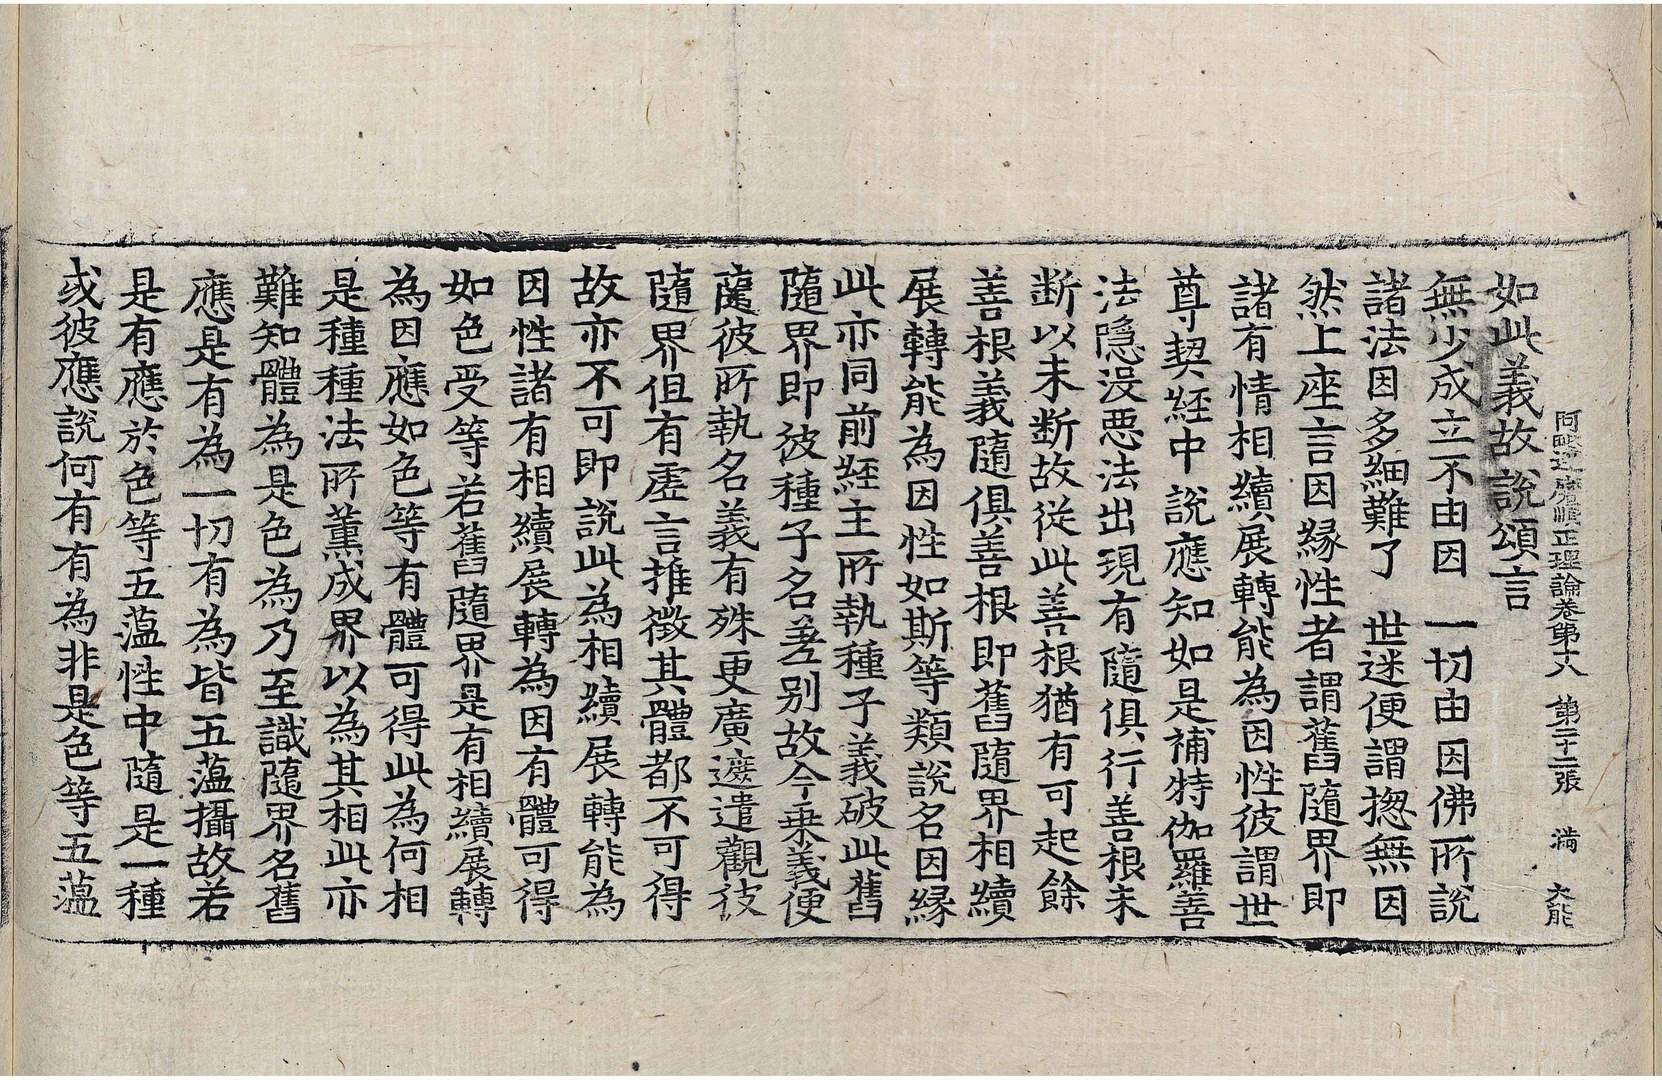 阿毗達磨順正理論卷第十八　第二十二張　満　大能
如此義故說頌言
無少成立不由因　一切由因佛所說
諸法因多細難了　世迷便謂揔無因
然上座言因縁性者謂舊隨界即
諸有情相續展轉能為因性彼謂世
尊契經中說應知如是補特伽羅善
法隱没悪法出現有隨俱行善根未
断以未断故從此善根猶有可起餘
善根義隨俱善根即舊隨界相續
展轉能為因性如斯等類說名因縁
此亦同前經主所執種子義破此舊
隨界即彼種子名差别故今乗義便
隨彼所執名義有殊更廣遮遣觀彼
隨界但有虛言推徵其體都不可得
故亦不可即說此為相續展轉能為
因性諸有相續展轉為因有體可得
如色受等若舊隨界是有相續展轉
為因應如色等有體可得此為何相
是種種法所薫成界以為其相此亦
難知體為是色為乃至識隨界名舊
應是有為一切有為皆五蕰攝故若
是有應於色等五蕰性中隨是一種
或彼應說何有有為非是色等五蕰